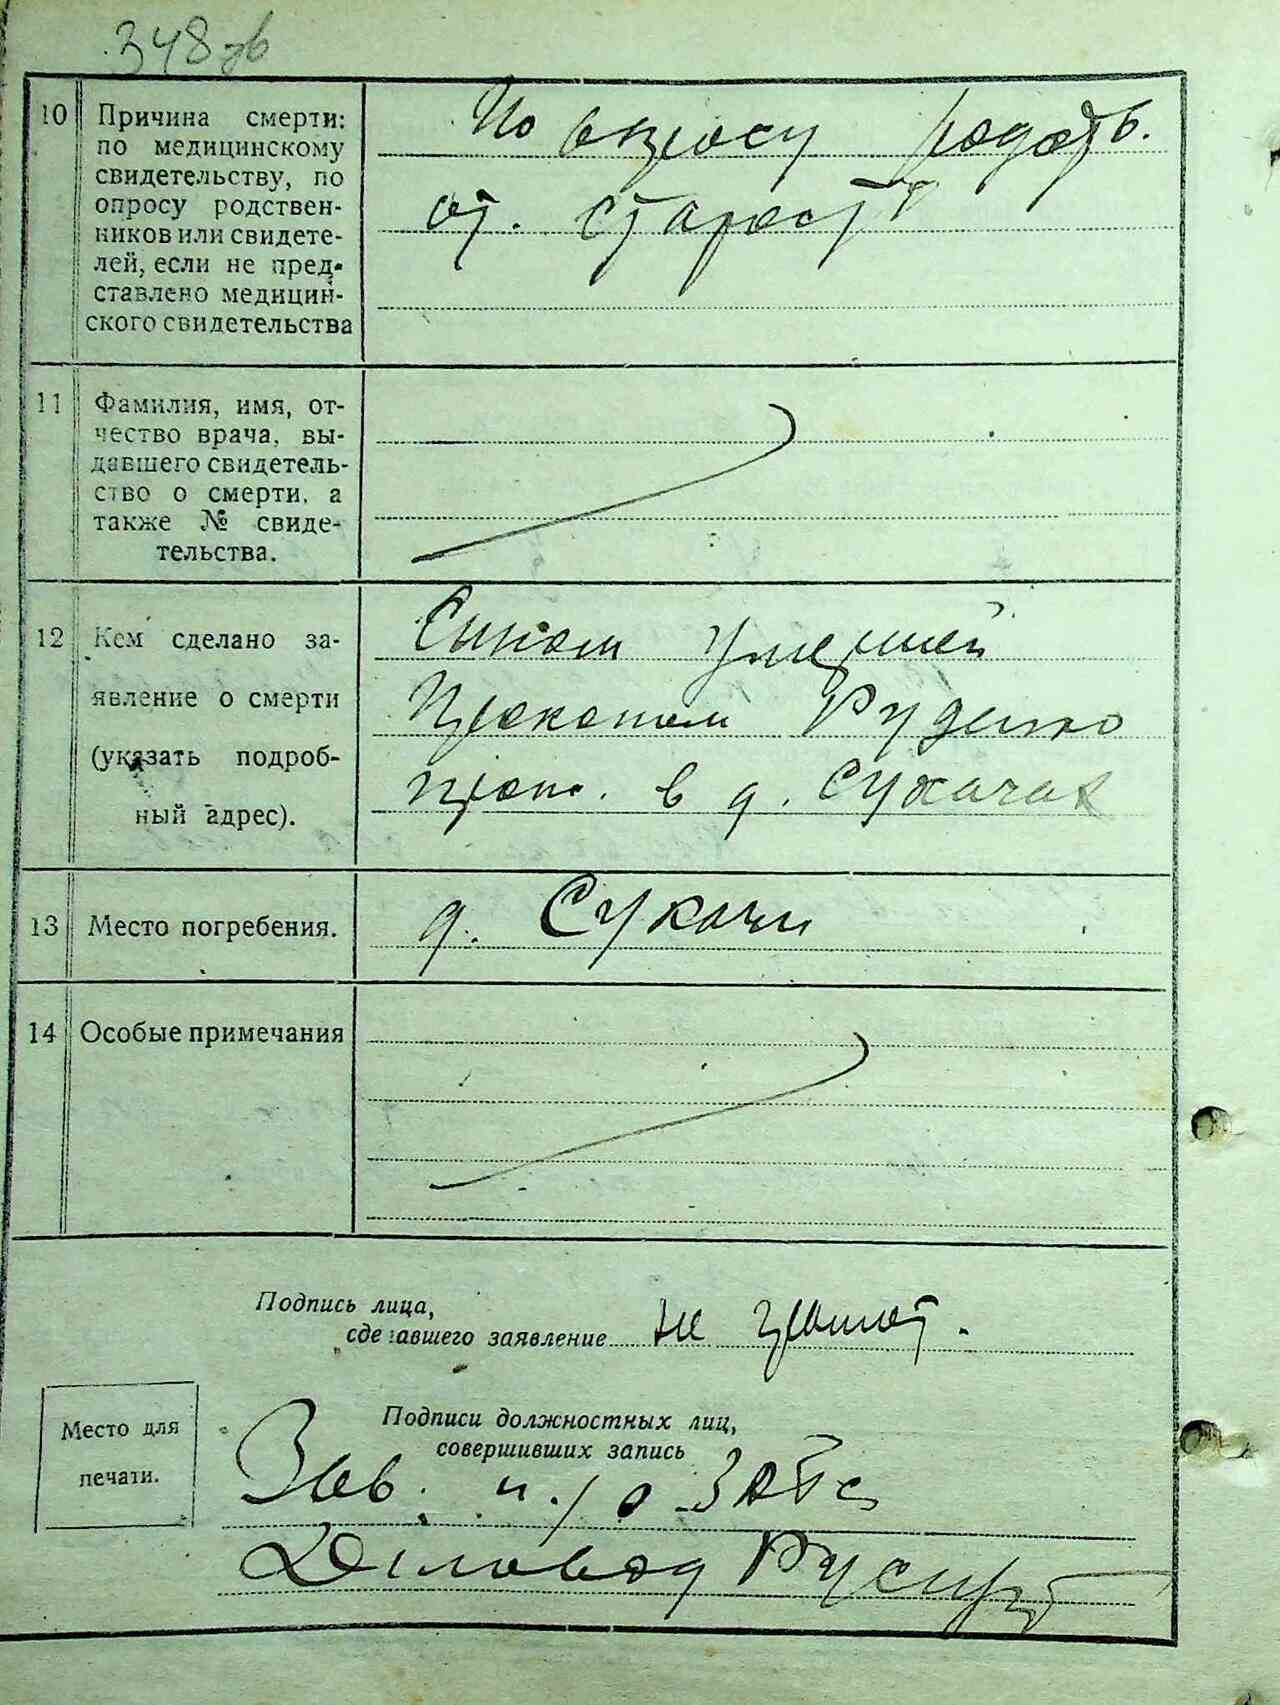 348 об
10 Причина смерти:
по медицинскому
свидетельству, по
опросу родствен-
ников или свидете-
лей, если не пред-
ставлено медицин-
ского свидетельства
По опросу родств.
от. старости
11 Фамилия, имя, от-
чество врача, вы-
давшего свидетель-
ство о смерти, а
также № свиде-
тельства.
12 Кем сделано за-
явление о смерти
(указать подроб-
ный адрес).
Сином умершей
Прокопом Руденко
прож. в д. Сукачах
13 Место погребения.
д. Сукачи
14 Особые примечания
Подпись лица,
сделавшего заявление не грамот.
Место для
печати.
Подписи должностных лиц,
совершивших запись
Зав. н/о ЗАГС
Діловод